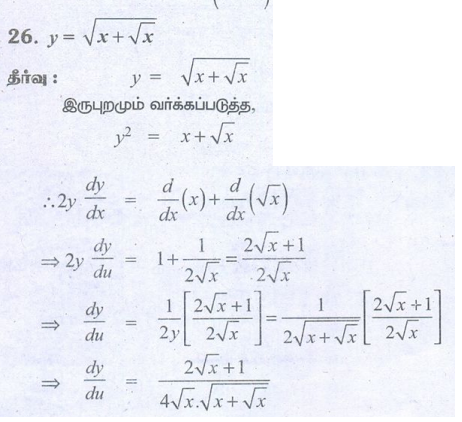 26. y = √(x + √x)
தீர்வு : y = √(x + √x)
இருபுறமும் வர்க்கப்படுத்த,
y² = x + √x
∴ 2y dy/dx = d/dx (x) + d/dx (√x)
⇒ 2y dy/du = 1 + 1/(2√x) = (2√x + 1)/(2√x)
⇒ dy/du = 1/(2y) [(2√x + 1)/(2√x)] = 1/(2√(x + √x)) [(2√x + 1)/(2√x)]
⇒ dy/du = (2√x + 1)/(4√x.√(x + √x))